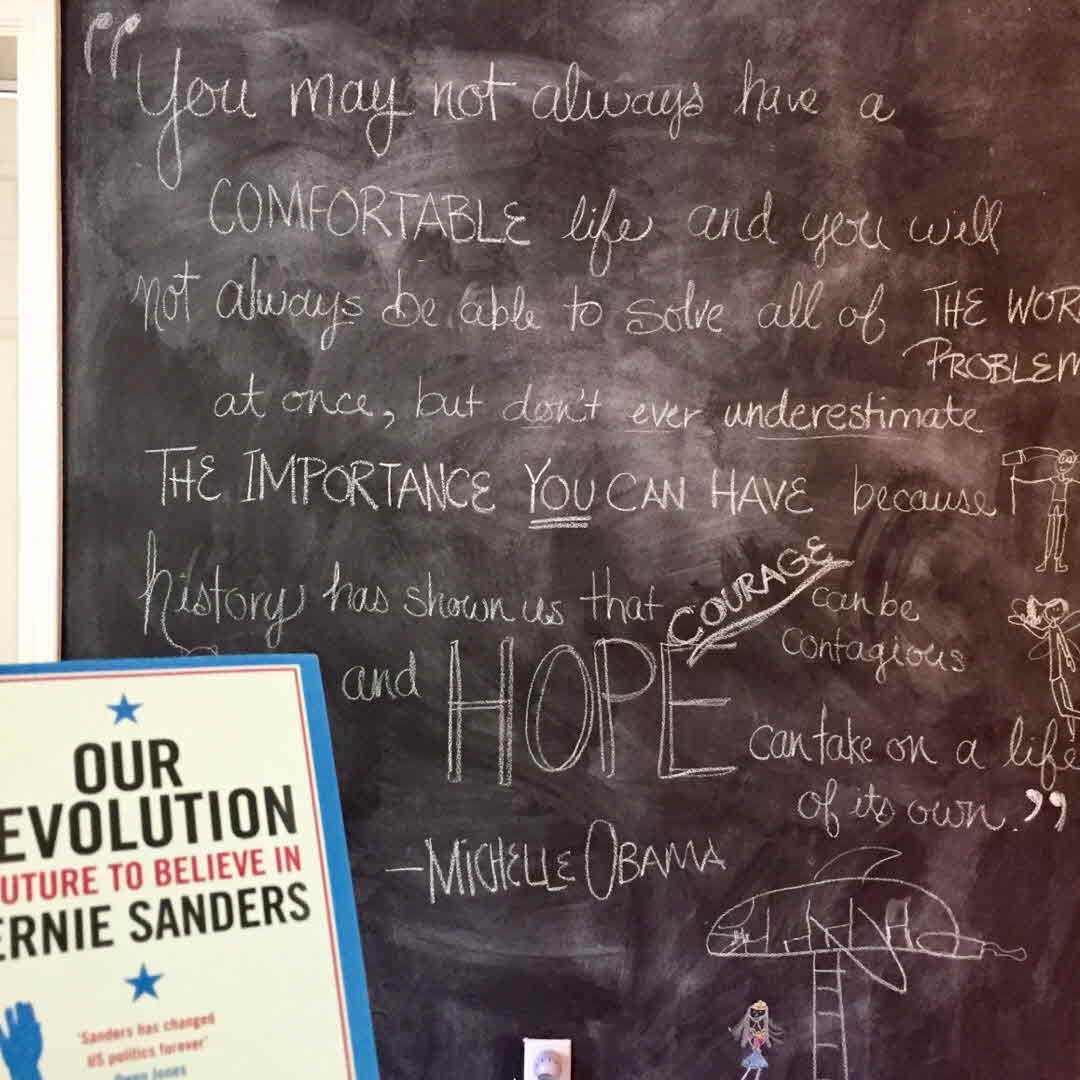 “You may not always have a
COMFORTABLE life and you will
not always be able to solve all of THE WOR
PROBLEM
at once, but don't ever underestimate
THE IMPORTANCE YOU CAN HAVE because
history has shown us that COURAGE can be
contagious
and HOPE can take on a life
of its own.”
—MICHELLE OBAMA
OUR
EVOLUTION
UTURE TO BELIEVE IN
ERNIE SANDERS
'Sanders has changed
US politics forever'
Owen Jones